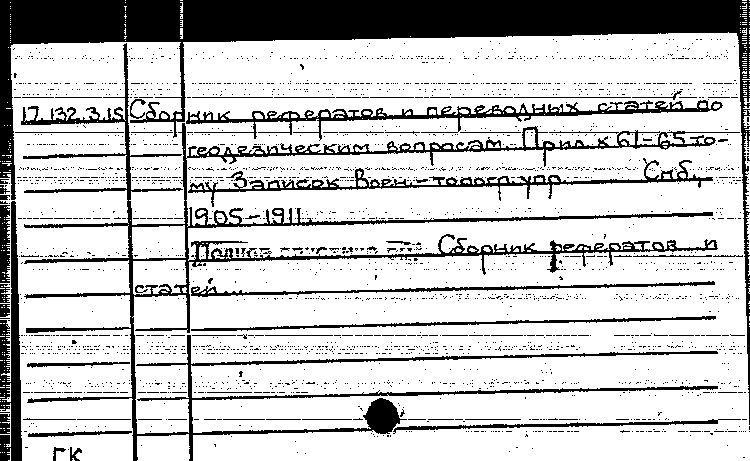 17.132.3.15 Сборник рефератов и переводных статей по
геодезическим вопросам. Прил. к 61-65 то-
му Записок Воен.-топогр. упр. Спб,
1905-1911.
Полное описание см: Сборник рефератов и
статей...
ГК